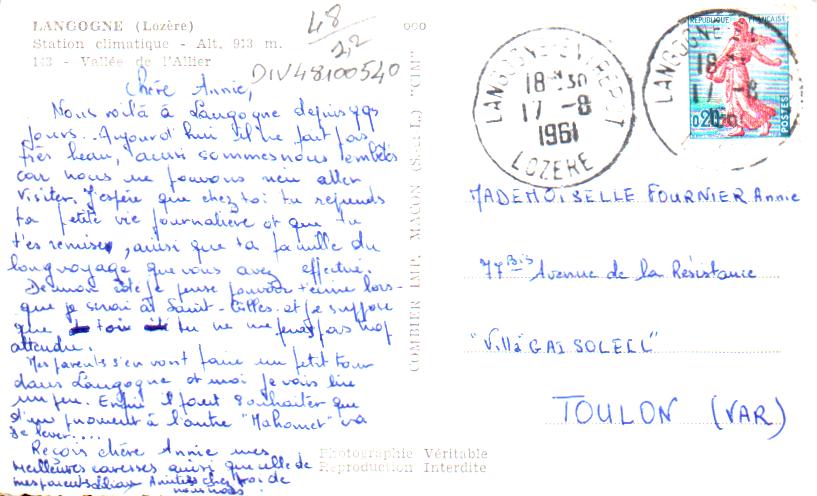 LANGOGNE (Lozère)
Station climatique - Alt. 913 m.
143 - Vallée de l'Allier
48
22
DIV48100540
Chère Annie,
Nous voilà à Langogne depuis qqs
jours... Aujourd'hui il ne fait pas
très beau, aussi sommes nous embêtés
car nous ne pouvons rien aller
visiter. J'espère que chez toi tu reprends
ta petite vie journalière et que tu
t'es remise, ainsi que ta famille du
long voyage que vous avez effectué.
De mon côté je pense pouvoir t'écrire lors-
que je serai à Saint-Gilles et je suppose
que toi tu ne me feras pas trop
attendre.
Mes parents s'en vont faire un petit tour
dans Langogne et moi je vais lire
un peu. Enfin il faut souhaiter que
d'un moment à l'autre "Mahomet" va
se lever....
Reçois chère Annie mes
meilleures caresses ainsi que celle de
mes parents. Amitiés chez toi de
nous tous.
COMBIER IMP. MACON (S.-et-L.) "CIM"
Photographie Véritable
Reproduction Interdite
LANGOGNE ENTREPOT
18H30
17 -8
1961
LOZERE
LANGOGNE
18
17 -8
REPUBLIQUE FRANÇAISE
0,20
POSTES
MADEMOISELLE FOURNIER Annie
77 Bis Avenue de la Résistance
"Villa GAI SOLEIL"
TOULON (VAR)